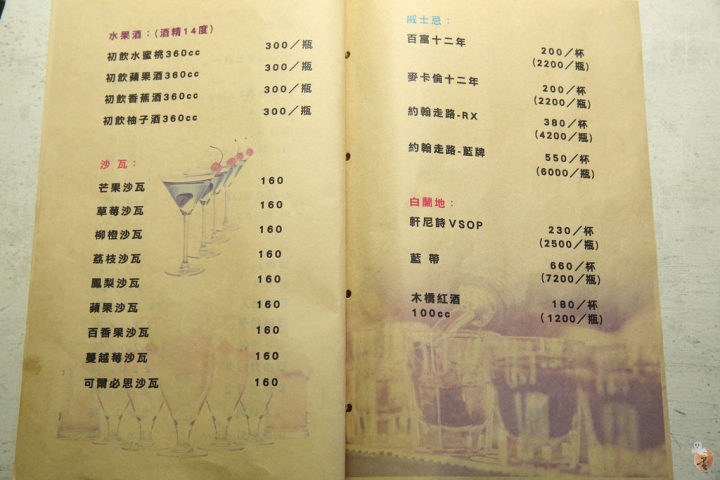 水果酒：(酒精14度)
初飲水蜜桃360cc 300／瓶
初飲蘋果酒360cc 300／瓶
初飲香蕉酒360cc 300／瓶
初飲柚子酒360cc 300／瓶
沙瓦：
芒果沙瓦 160
草莓沙瓦 160
柳橙沙瓦 160
荔枝沙瓦 160
鳳梨沙瓦 160
蘋果沙瓦 160
百香果沙瓦 160
蔓越莓沙瓦 160
可爾必思沙瓦 160
威士忌：
百富十二年 200／杯
(2200／瓶)
麥卡倫十二年 200／杯
(2200／瓶)
約翰走路-RX 380／杯
(4200／瓶)
約翰走路-藍牌 550／杯
(6000／瓶)
白蘭地：
軒尼詩VSOP 230／杯
(2500／瓶)
藍帶 660／杯
(7200／瓶)
木橋紅酒 180／杯
100cc (1200／瓶)